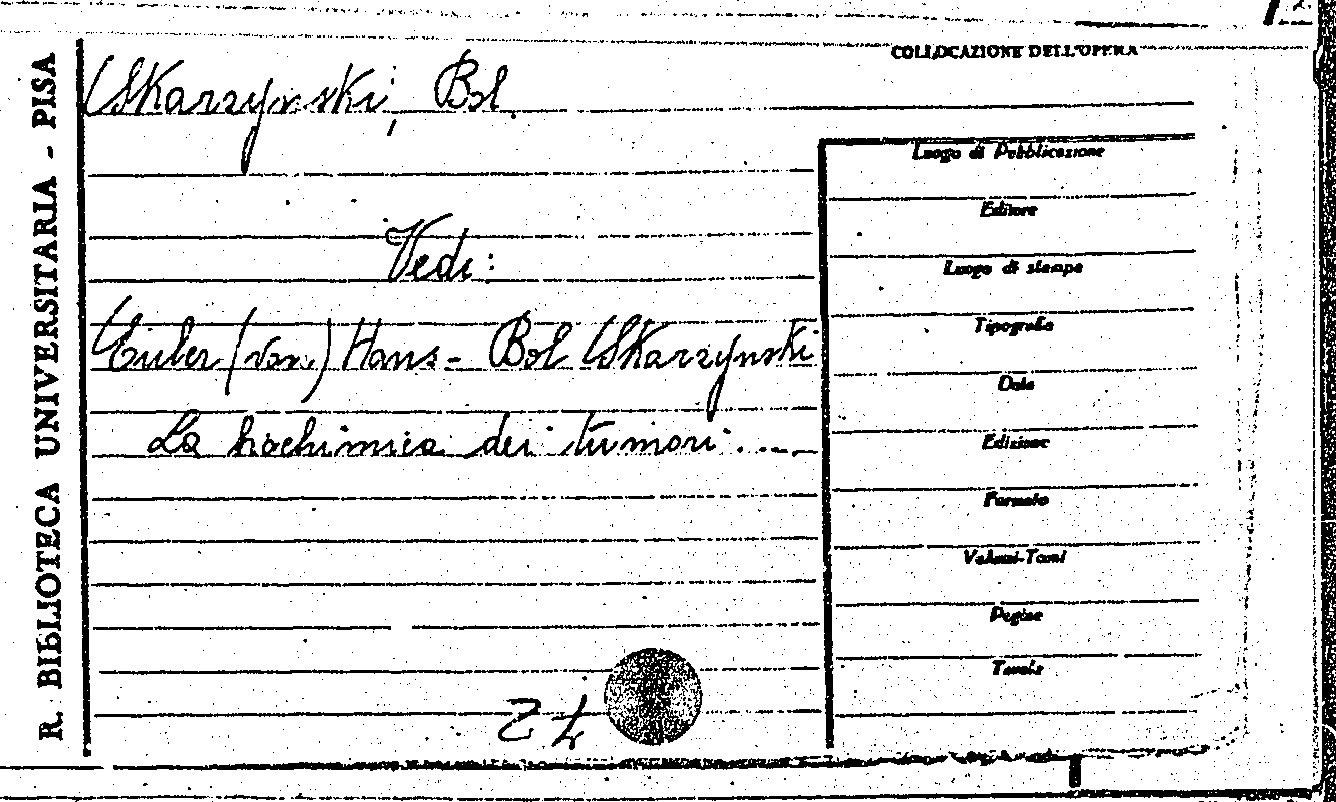 R. BIBLIOTECA UNIVERSITARIA - PISA
COLLOCAZIONE DELL'OPERA
Skarzynski, Bol.
Vedi:
Euler (von) Hans - Bol Skarzynski
La biochimica dei tumori ....
Luogo di Pubblicazione
Editore
Luogo di stampa
Tipografia
Data
Edizione
Formato
Volumi-Tomi
Pagine
Tavole